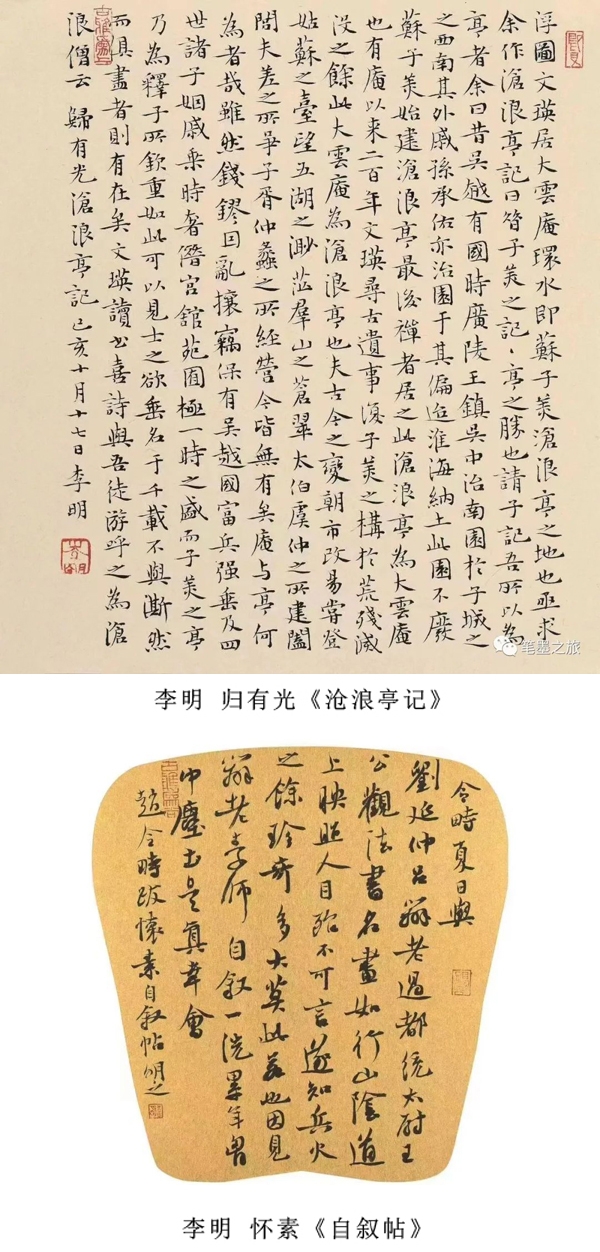 浮圖文瑛居大雲庵環水即蘇子美滄浪亭之地也亟求
余作滄浪亭記曰昔子美之記〻亭之勝也請子記吾所以為
亭者余曰昔吳越有國時廣陵王鎮吳中治南園於子城之
之西南其外戚孫承佑亦治園于其偏迨淮海納土此園不廢
蘇子美始建滄浪亭最後禪者居之此滄浪亭為大雲庵
也有庵以来二百年文瑛尋古遺事復子美之構於荒殘滅
沒之餘此大雲庵為滄浪亭也夫古今之變朝市改易嘗登
姑蘇之臺望五湖之渺茫羣山之蒼翠太伯虞仲之所建闔
閭夫差之所爭子胥仲蠡之所經營今皆無有矣庵与亭何
為者哉雖然錢鏐因亂攘竊保有吳越國富兵强垂及四
世諸子姻戚乘時奢僭宮館苑囿極一時之盛而子美之亭
乃為釋子所欽重如此可以見士之欲垂名于千載不與澌然
而俱盡者則有在矣文瑛讀书喜詩與吾徒游呼之為滄
浪僧云 歸有光滄浪亭記 己亥十月十七日李明
笔墨之旅
李明 归有光《沧浪亭记》
令時夏日與
劉延仲吕辯老過都統太尉王
公觀法書名畫如行山陰道
上映照人目殆不可言遂知兵火
之餘珍奇多大莫此若也因見
辯老 自叙一洗累年胷
中塵土是真幸會
趙令時跋懷素自叙帖 明之
李明 怀素《自叙帖》